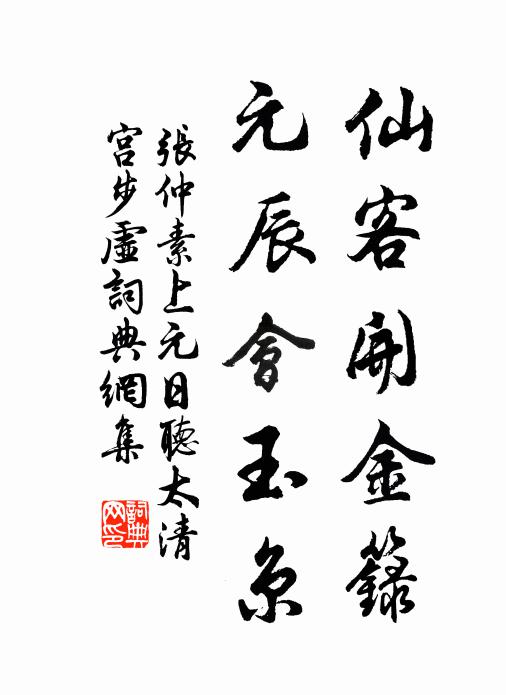 仙客開金籙
元辰會玉京
張仲素上元日聽太清
宮步虛詞典網集
詞典
网印